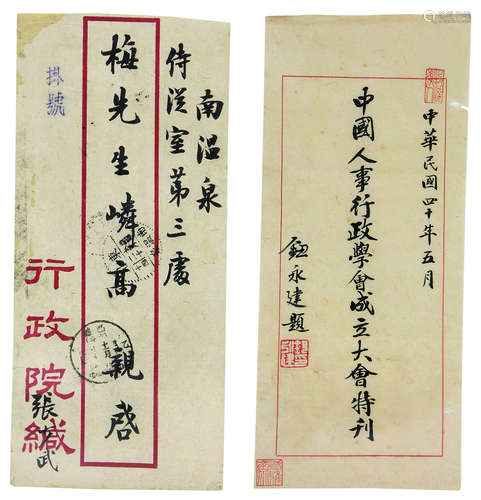 南溫泉
侍從室第三處
梅先生嶙高 親啓
掛號
行政院緘
張
武
中華民國四十年五月
中國人事行政學會成立大會特刊
鈕永建題